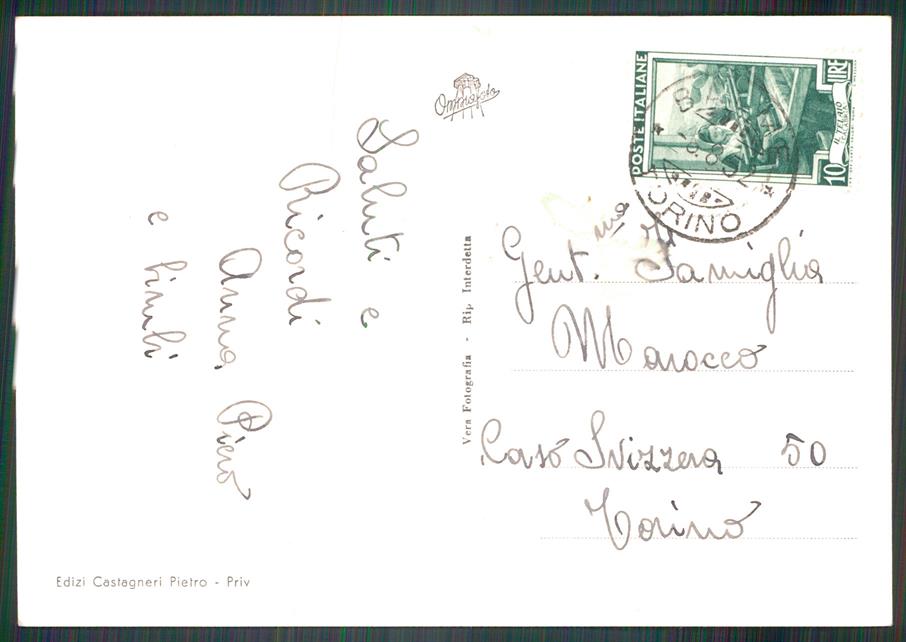 Saluti e
Ricordi
Anna, Piero
e
Vera Fotografia - Rip. Interdetta
Edizi Castagneri Pietro - Priv
POSTE ITALIANE
LIRE
10
IL TELAIO
TORINO
Gent.ma
Famiglia
Marocco
Casa Svizzera 50
Torino